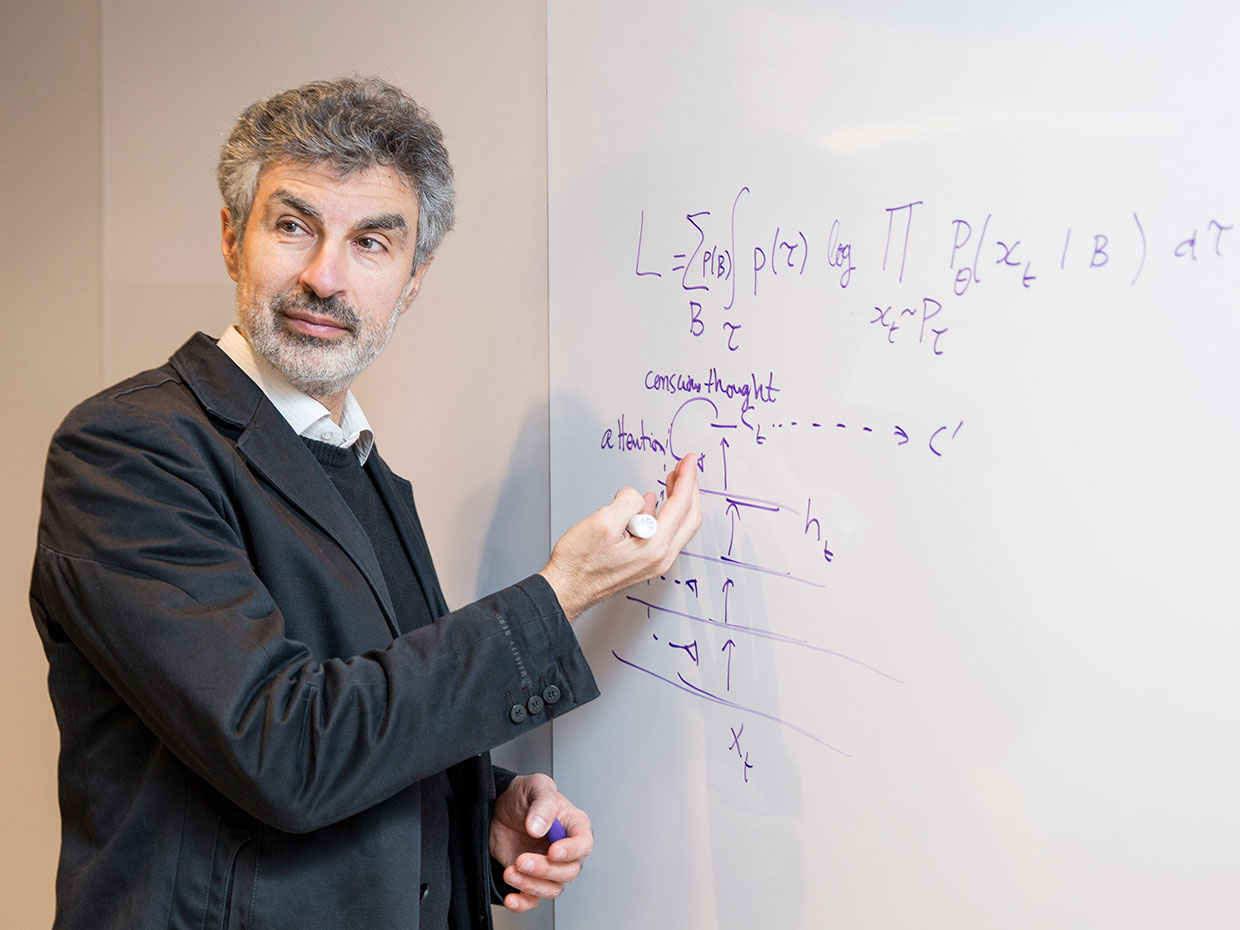 L = ∑ P(B) ∫ p(τ) log ∏ P_θ(x_t | B) dτ
B τ x_t ~ P_τ
conscious thought
attention c_t -----> c'
h_t
x_t